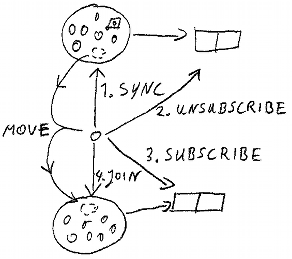 1. SYNC
2. UNSUBSCRIBE
MOVE
3. SUBSCRIBE
4. JOIN